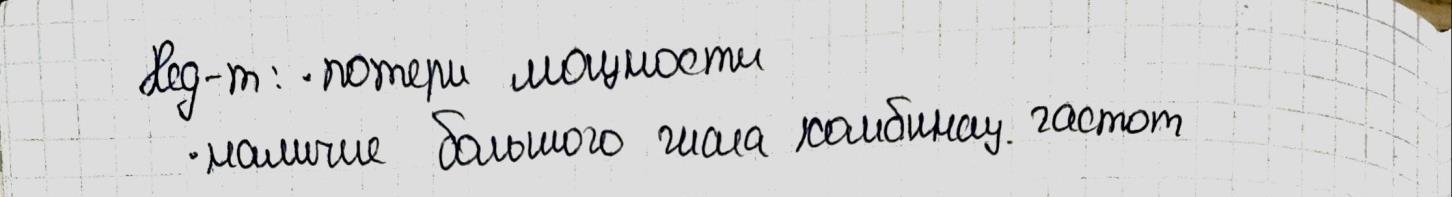 Нед-т: · потери мощности
· наличие большого числа комбинац. частот